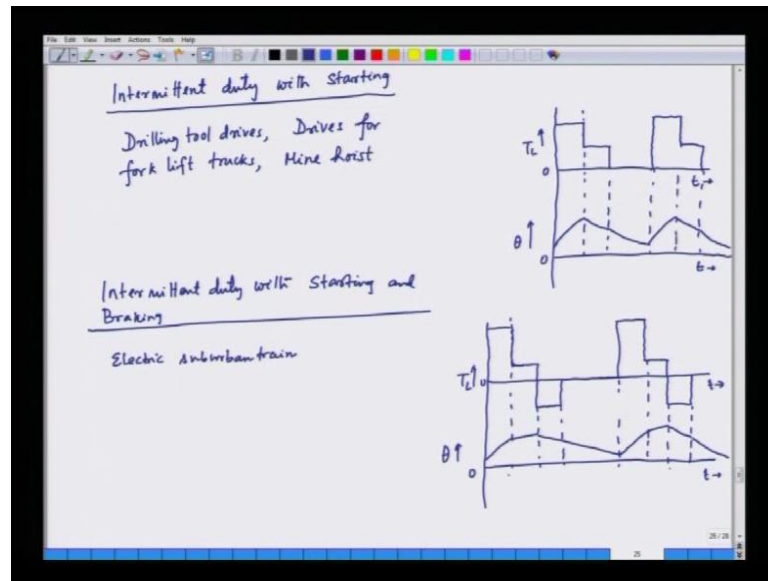 File Edit View Insert Actions Tools Help
Intermittent duty with Starting
Drilling tool drives, Drives for
fork lift trucks, Mine hoist
TL
0
t
θ
0
t
Intermittent duty with Starting and
Braking
Electric suburban train
TL 0
t
θ
0
t
25 / 25
25